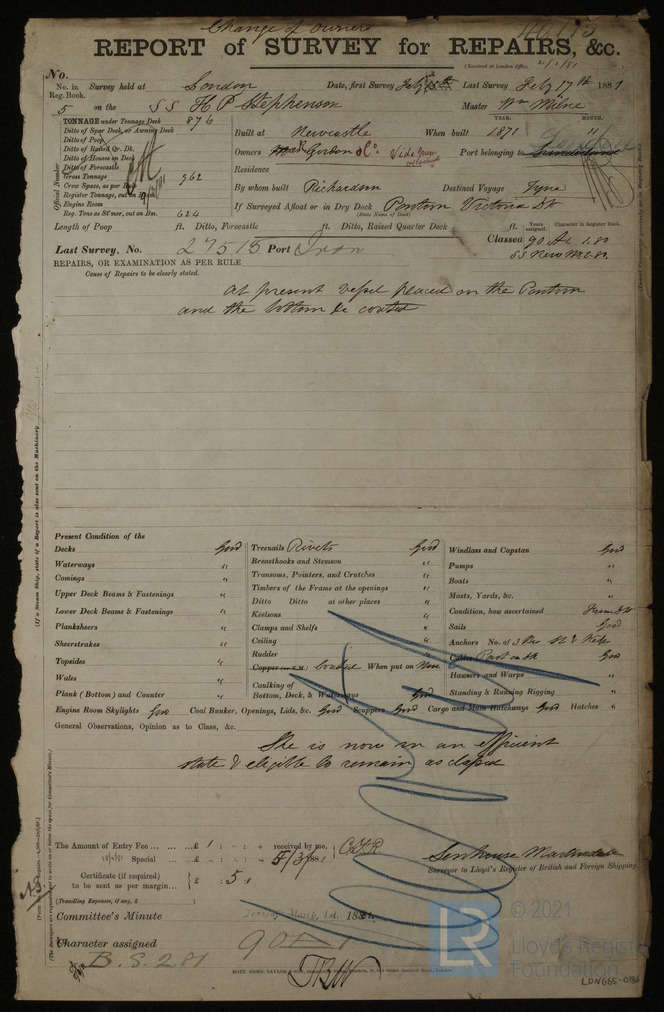 Change of Owners
REPORT of SURVEY for REPAIRS, &c.
(Received at London Office,
No.
No. in Reg. Book. Survey held at London Date, first Survey Feby Last Survey Feby 17th 1881
5 on the SS H P Stephenson Master Wm Milne
TONNAGE under Tonnage Deck 876
Ditto of Spar Deck, or Awning Deck
Ditto of Poop
Ditto of Raised Qr. Dk.
Ditto of House on Deck
Ditto of Forecastle
Gross Tonnage 962
Crew Space, as per Rule
Register Tonnage, cut on
Engine Room
Reg. Tons as St'mer, cut on Bm. 624
Official Number
Built at Newcastle When built YEAR. 1871 MONTH. 11
Owners Gordon & Co. Port belonging to Sunderland
Residence
By whom built Richardson Destined Voyage Tyne
If Surveyed Afloat or in Dry Dock Pontoon Victoria Dk
(State Name of Dock)
Length of Poop ft. Ditto, Forecastle ft. Ditto, Raised Quarter Deck ft.
Years assigned. Character in Register Book.
Classed 90 A1 1.80
Last Survey, No. 27515 Port Iron
REPAIRS, OR EXAMINATION AS PER RULE
Cause of Repairs to be clearly stated.
At present vessel placed on the Pontoon
and the bottom re coated
Present Condition of the
Decks Good
Waterways "
Comings "
Upper Deck Beams & Fastenings "
Lower Deck Beams & Fastenings "
Planksheers "
Sheerstrakes "
Topsides "
Wales "
Plank (Bottom) and Counter "
Treenails Rivets Good
Breasthooks and Stemson "
Transoms, Pointers, and Crutches "
Timbers of the Frame at the openings "
Ditto Ditto at other places "
Keelsons "
Clamps and Shelfs "
Ceiling "
Rudder "
Copper (or Y.M.) Coated When put on Now
Caulking of
Bottom, Deck, & Waterways Good
Windlass and Capstan Good
Pumps "
Boats "
Masts, Yards, &c. "
Condition, how ascertained
Sails Good
Anchors No. of 3
Cables Part on dk Good
Hawsers and Warps "
Standing & Running Rigging "
Engine Room Skylights Good Coal Bunker, Openings, Lids, &c. Good Scuppers Good Cargo and Main Hatchways Good Hatches "
General Observations, Opinion as to Class, &c.
She is now in an efficient
state & eligible to remain as classed
The Amount of Entry Fee £ 1 : : received by me,
Special £ : : 5/3/1881
Certificate (if required) to be sent as per margin £ : 5 :
(Travelling Expenses, if any, £ )
Senhouse Martindale
Surveyor to Lloyd's Register of British and Foreign Shipping.
Committee's Minute Tuesday March 1st 188
Character assigned 90A1
B.S. 2.81
(If a Steam Ship, state if a Report is also sent on the Machinery
LR
© 2021
Lloyd's Register
Foundation
LON665-0136